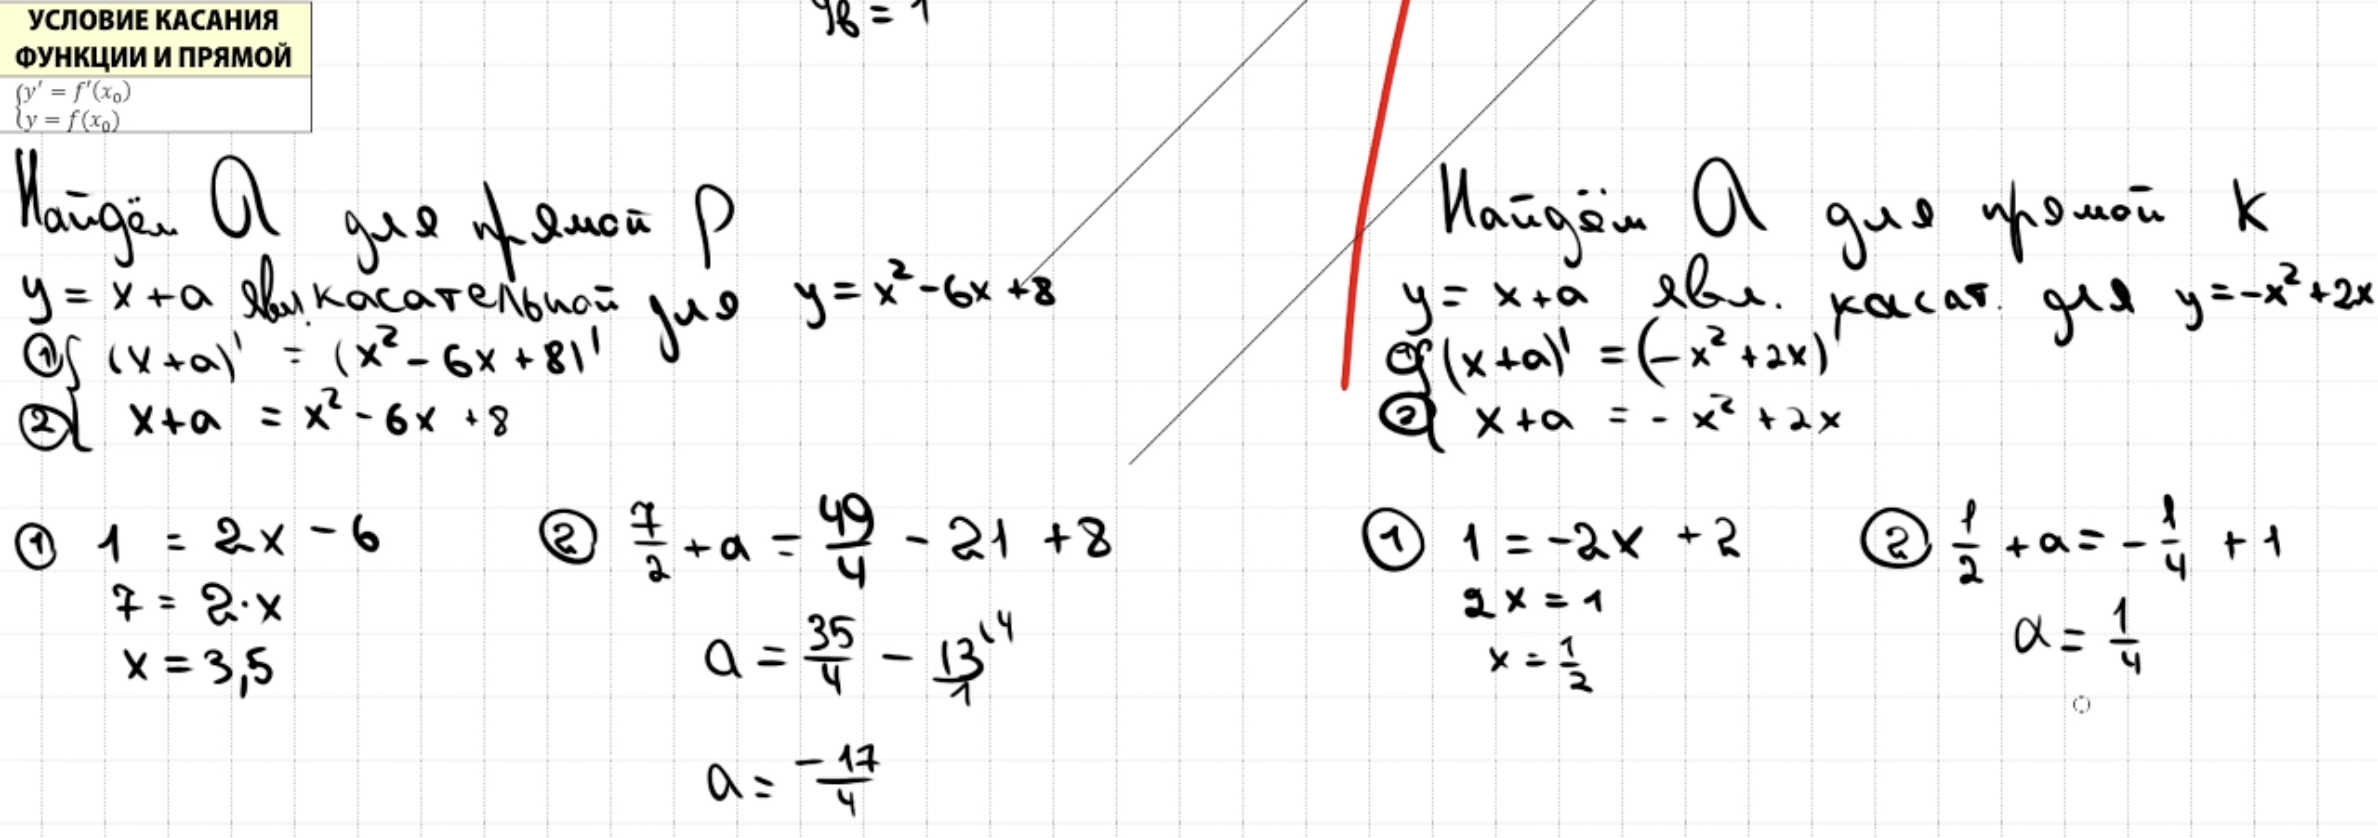 УСЛОВИЕ КАСАНИЯ
ФУНКЦИИ И ПРЯМОЙ
{y' = f'(x₀)
{y = f(x₀)
yв = 1
Найдём a для прямой p
y = x + a явл. касательной для y = x² - 6x + 8
① { (x + a)' = (x² - 6x + 8)'
② { x + a = x² - 6x + 8
① 1 = 2x - 6
7 = 2·x
x = 3,5
② 7/2 + a = 49/4 - 21 + 8
a = 35/4 - 13/1 (4
a = -17/4
Найдём a для прямой k
y = x + a явл. касат. для y = -x² + 2x
① { (x + a)' = (-x² + 2x)'
② { x + a = - x² + 2x
① 1 = -2x + 2
2x = 1
x = 1/2
② 1/2 + a = - 1/4 + 1
a = 1/4